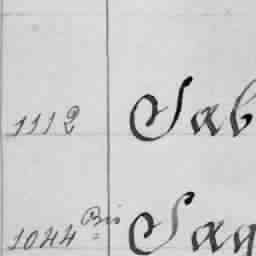 1112 Sab
1044 Bis Sag